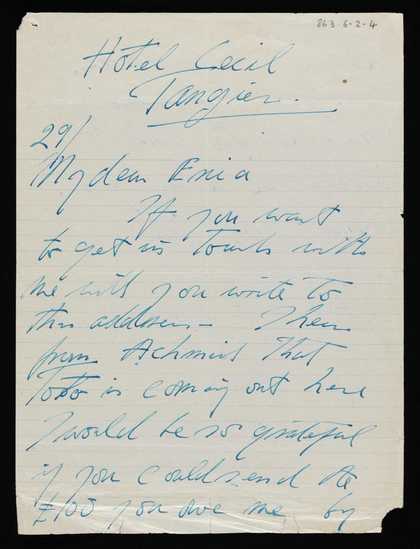 863-6-2-4
Hotel Cecil
Tangier.
29/
My dear Erica
If you want
to get in touch with
me will you write to
this address - I hear
from Achmed that
Toto is coming out here
I would be so grateful
if you could send the
£100 you owe me by